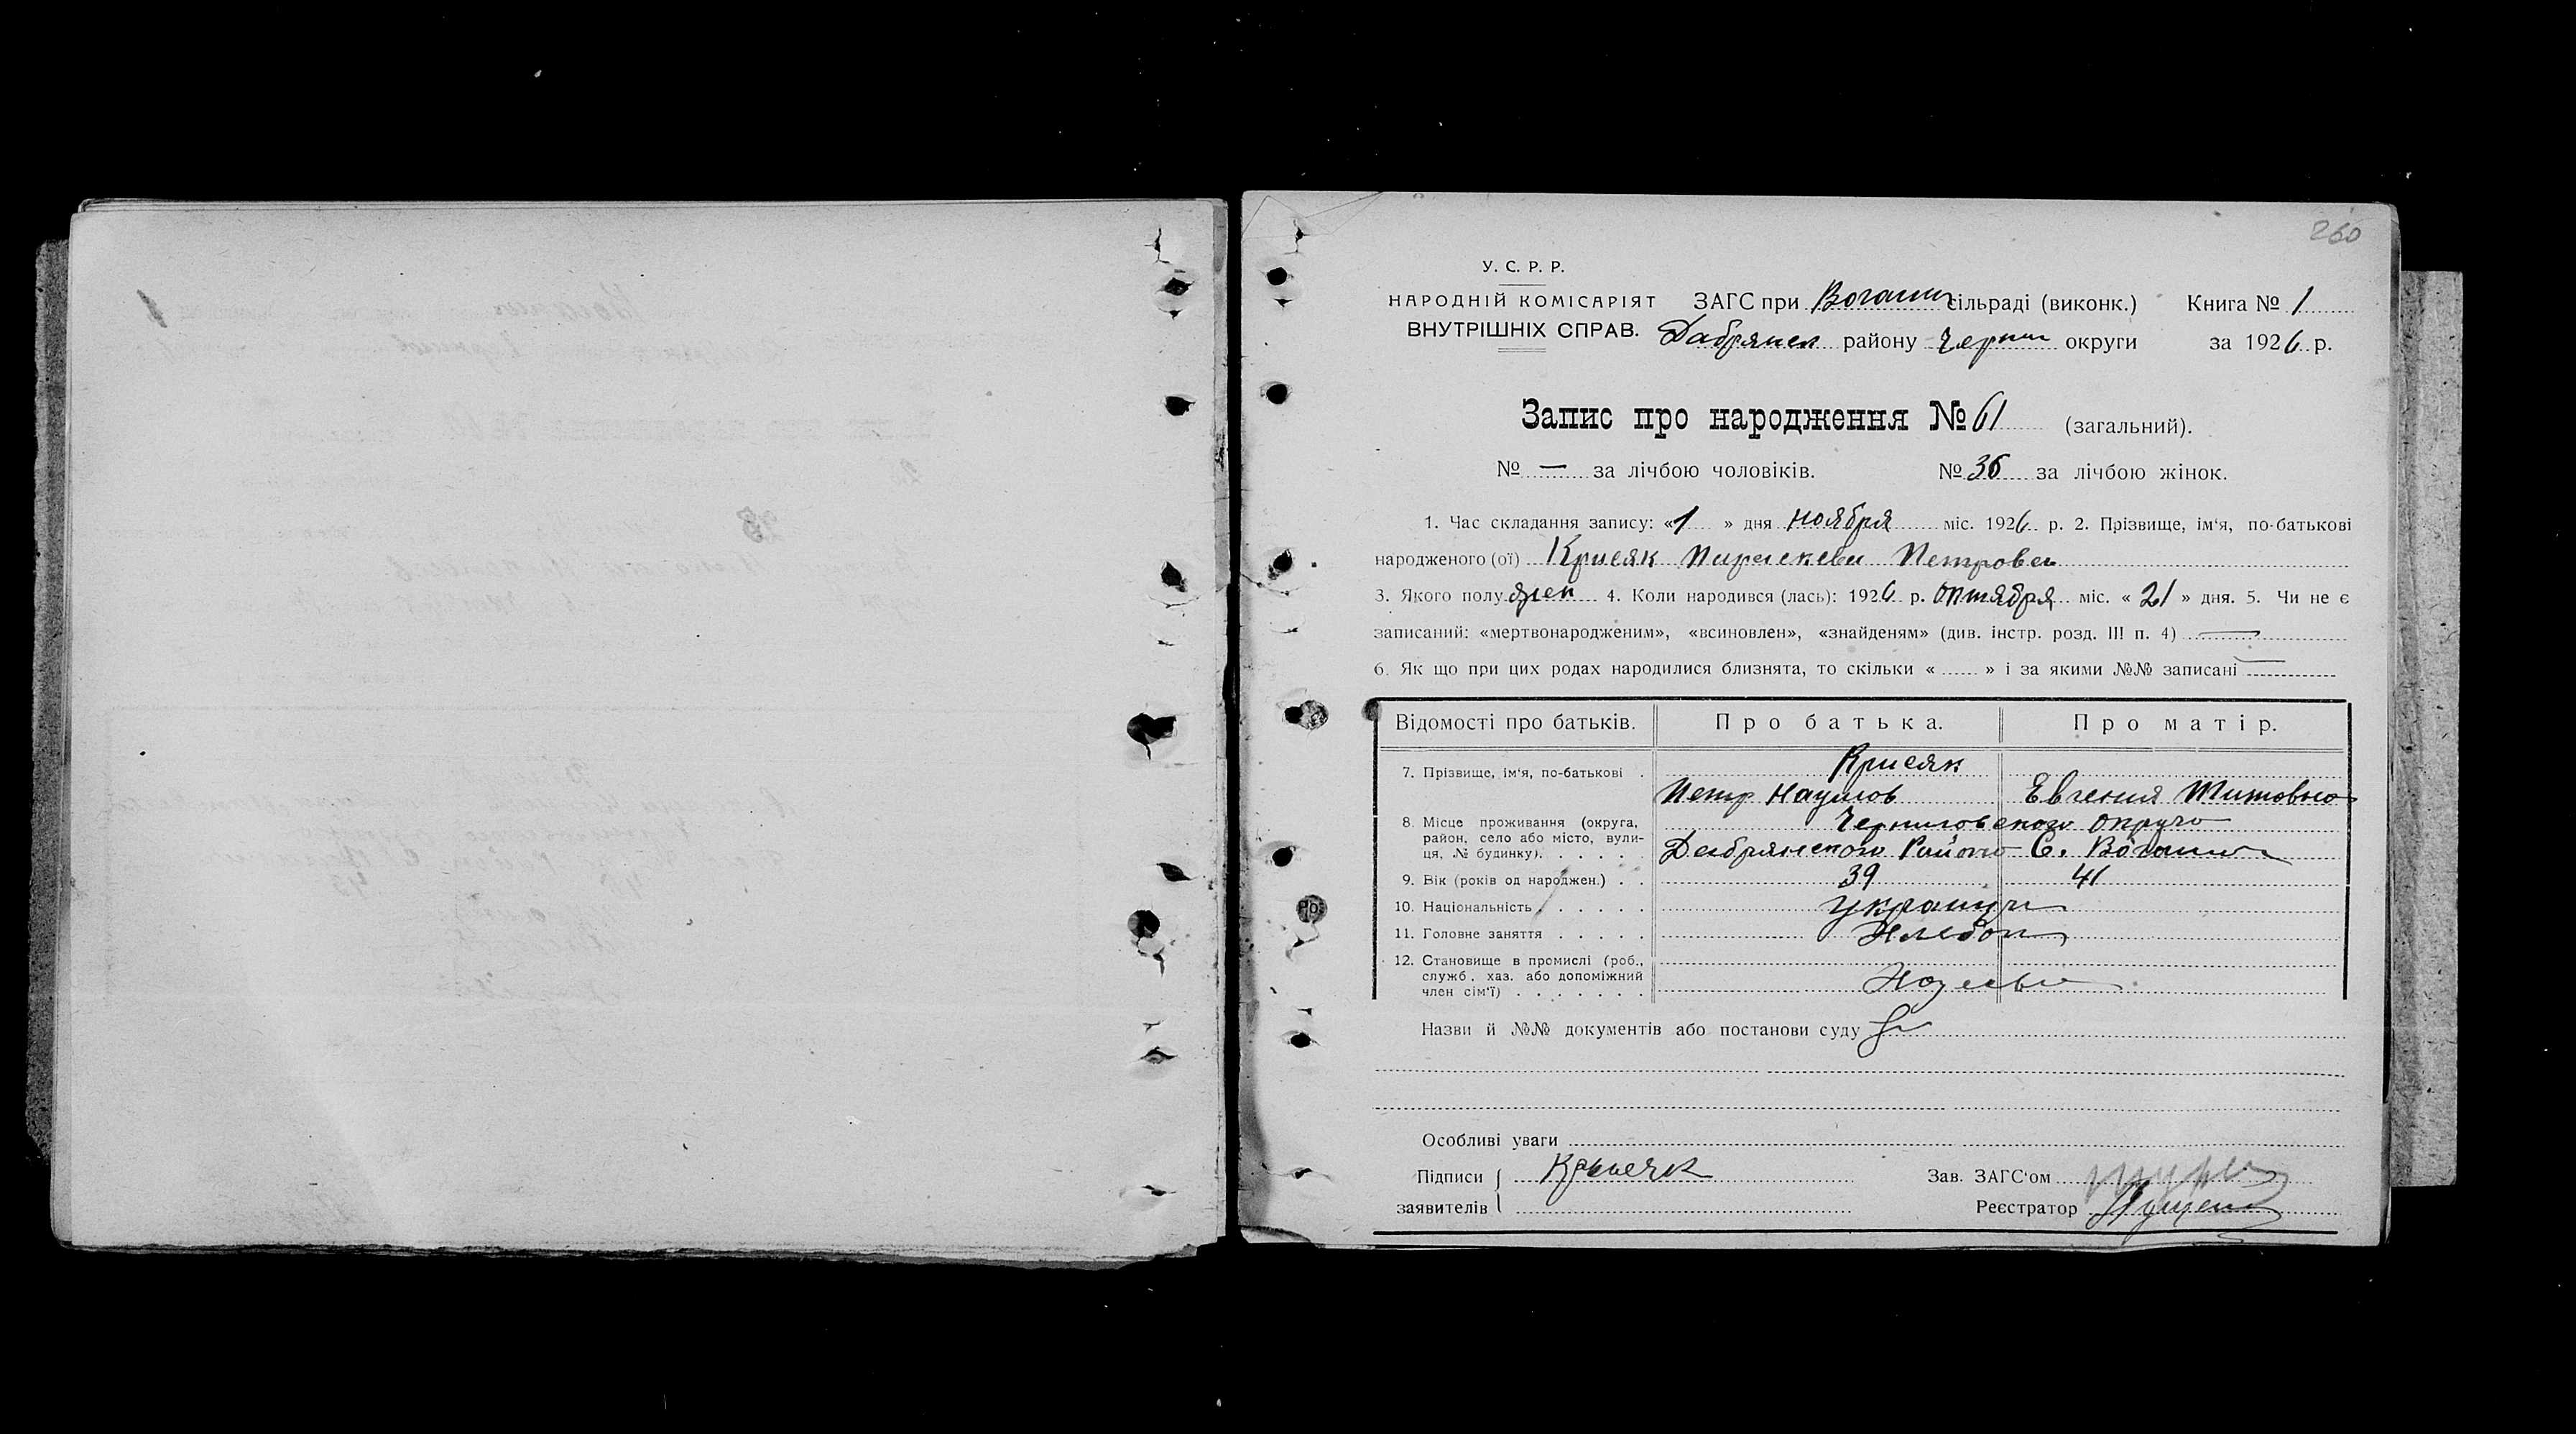 260
У. С. Р. Р.
НАРОДНІЙ КОМІСАРІЯТ
ВНУТРІШНІХ СПРАВ.
ЗАГС при сільраді (виконк.) Книга № 1
району Черниг округи за 1926 р.
Запис про народження № 61 (загальний).
№ — за лічбою чоловіків. № 36 за лічбою жінок.
1. Час складання запису: «1» дня ноября міс. 1926 р. 2. Прізвище, ім'я, по-батькові
народженого (ої) Крисяк Параскева Петровеа
3. Якого полу жен 4. Коли народився (лась): 1926 р. октября міс. «21» дня. 5. Чи не є
записаний: «мертвонародженим», «всиновлен», «знайденям» (див. інстр. розд. III п. 4) —
6. Як що при цих родах народилися близнята, то скільки «......» і за якими №№ записані —
Відомості про батьків. Про батька. Про матір.
7. Прізвище, ім'я, по-батькові . Крисяк
Петр Наумов Евгения Титовно
8. Місце проживання (округа, район, село або місто, вулиця, № будинку). . . . . . Черниговского округо
Дабрянского Району С.
9. Вік (років од народжен.) . . 39 41
10. Національність . . . . . .
11. Головне заняття . . . . . Хлебоп
12. Становище в промислі (роб.,
служб., хаз. або допоміжний
член сім'ї) . . . . . . .
Назви й №№ документів або постанови суду
Особливі уваги
Підписи
заявителів
Зав. ЗАГС'ом
Реєстратор